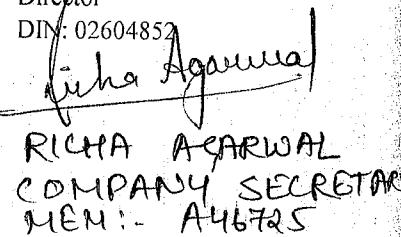 Director
DIN: 02604852
Richa Agarwal
RICHA AGARWAL
COMPANY SECRETAR
MEM:- A46725